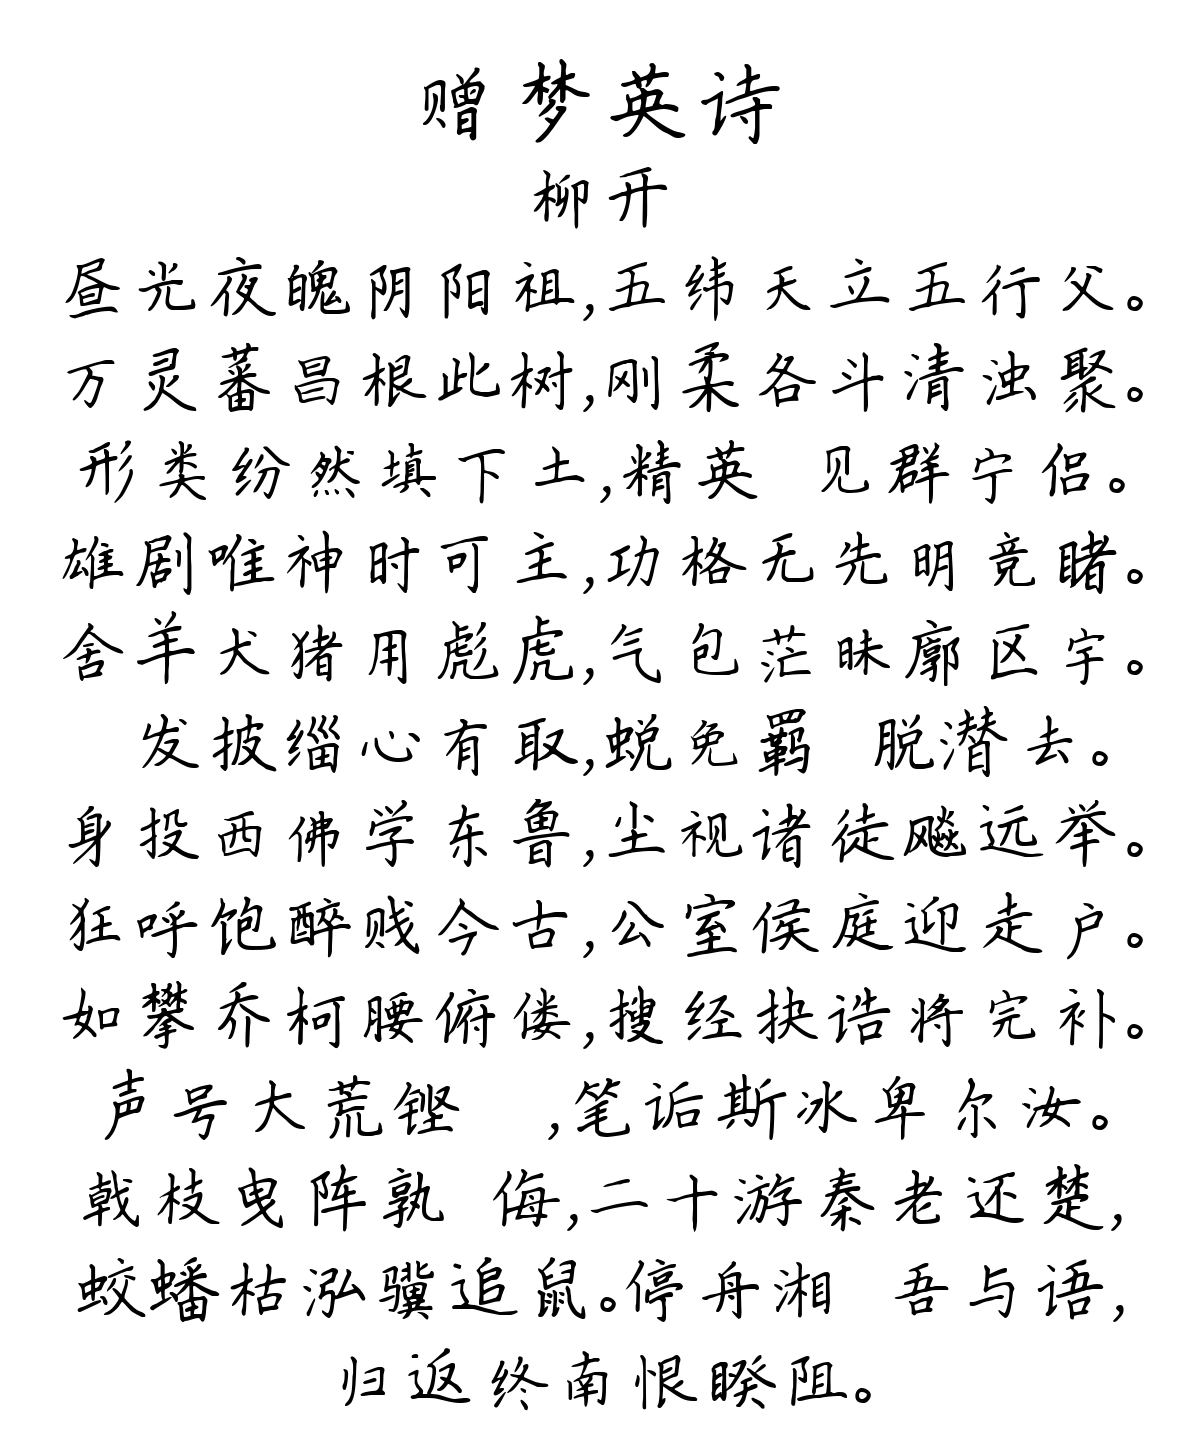 赠梦英诗
柳开
昼光夜魄阴阳祖,五纬天立五行父。
万灵蕃昌根此树,刚柔各斗清浊聚。
形类纷然填下土,精英 见群宁侣。
雄剧唯神时可主,功格无先明竞睹。
舍羊犬猪用彪虎,气包茫昧廓区宇。
发披缁心有取,蜕免羁 脱潜去。
身投西佛学东鲁,尘视诸徒飚远举。
狂呼饱醉贱今古,公室侯庭迎走户。
如攀乔柯腰俯偻,搜经抉诰将完补。
声号大荒铿 ,笔诟斯冰卑尔汝。
戟枝曳阵孰 侮,二十游秦老还楚,
蛟蟠枯泓骥追鼠。停舟湘 吾与语,
归返终南恨睽阻。